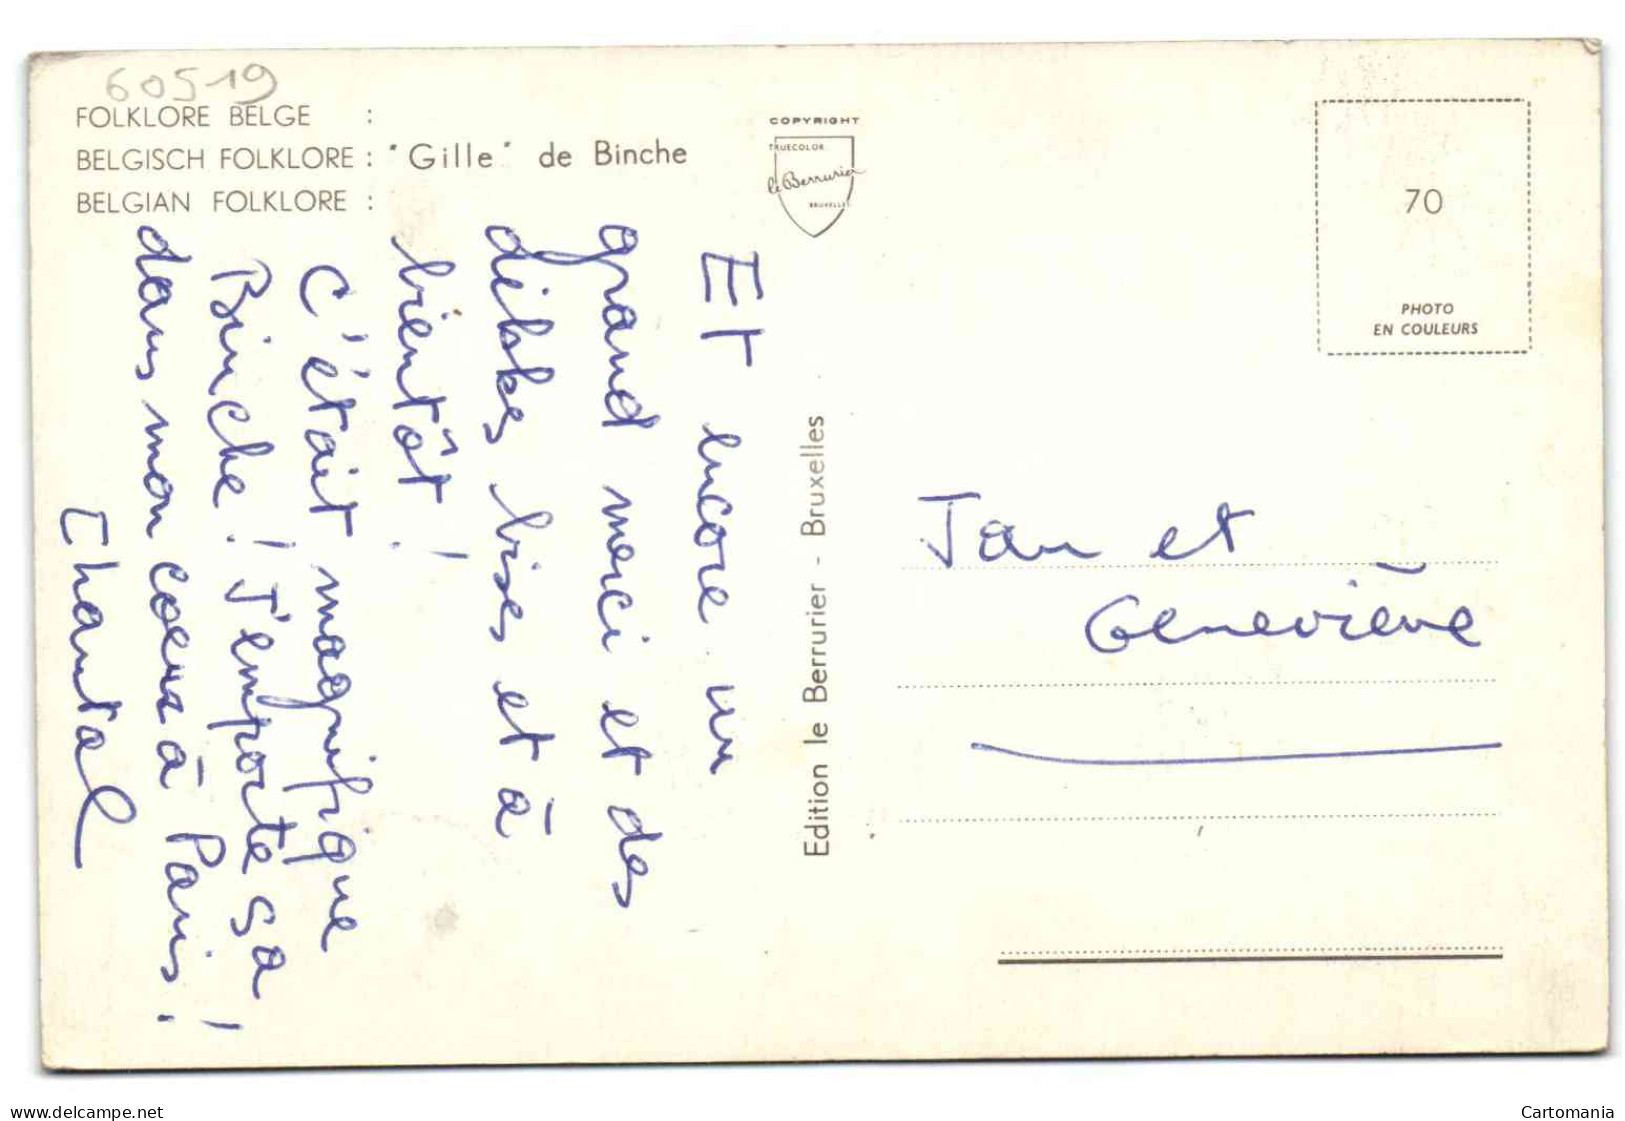 60519
FOLKLORE BELGE :
BELGISCH FOLKLORE : "Gille" de Binche
BELGIAN FOLKLORE :
COPYRIGHT
TRUECOLOR
le Berrurier
BRUXELLES
70
PHOTO
EN COULEURS
Et encore un
grand merci et des
bises et à
bientôt !
C'était magnifique
Binche ! J'emporte sa
dans mon coeur à Paris !
Chantal
Edition le Berrurier - Bruxelles
Jan et
Geneviève
www.delcampe.net
Cartomania